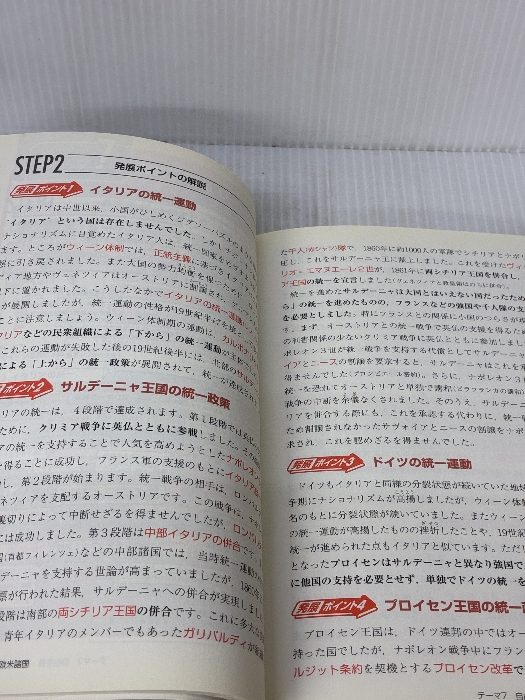 STEP2
発展ポイントの解説
発展 ポイント1 イタリアの統一運動
イタリアは中世以来、小国がひしめく
"イタリア"という国は存在しませんでした。しかし
ナショナリズムに目覚めたイタリア人は、統一
ます。ところがウィーン体制では、正統主義に基づき
態に引き戻されました。また大国の勢力均衡を
ディア地方やヴェネツィアはオーストリアに
下に置かれました。こうしたなかでイタリアの統一運動
が展開しましたが、統一運動の性格が19世紀前半と
ことに注意しましょう。ウィーン体制期の運動は、カルボナ
タリアなどの民衆組織による「下から」の統一運動が主
これらの運動が失敗した後の19世紀後半には、北部の
による「上から」の統一政策が展開されて、統一が達成され
ポイント2 サルデーニャ王国の統一政策
タリアの統一は、4段階で達成されます。第1段階では
ために、クリミア戦争に英仏とともに参戦しました。その
アの統一を支持することで人気を高めようとしたナポレオン
を得ることに成功し、フランス軍の支援のもとにイタリア
し、第2段階が始まります。統一戦争の相手は、ロンバル
ネツィアを支配するオーストリアです。この戦争は、ナポ
裏切りによって中断せざるを得ませんでしたが、ロン
には成功しました。第3段階は中部イタリアの併合です。
(首都フィレンツェ)などの中部諸国では、当時統一運動
デーニャを支持する世論が高まっていましたが、1860
票が行われた結果、サルデーニャへの併合が実現しまし
段階は南部の両シチリア王国の併合です。これに多大な
青年イタリアのメンバーでもあったガリバルディが
欧米諸国
た千人(赤シャツ)隊で、1860年に約1000人の軍隊でシチリアとナポリ
服し、これをサルデーニャ王に献上しました。これを受けたヴィ
リオ=エマヌエーレ2世が、1861年に両シチリア王国を併合し、
ア王国の統一を宣言しました(ヴェネツィアと教皇領は
統一を進めたサルデーニャは大国とはいえない国だったため
ら」の統一を進めたものの、フランスなどの強国や千人隊の支
を必要としました。特にフランスとの関係に小国のつらさが
す。まず、オーストリアとの統一戦争で英仏の支援を得るため
の利害関係の少ないクリミア戦争に英仏とともに参加しまし
ポレオン3世が統一戦争を支持する代償としてサルデーニャ
イアとニースの割譲を要求すると、サルデーニャはこれを
得ませんでした(プロンビエール密約)。さらに、ナポレオン3世
統一を恐れてオーストリアと単独で講和(ヴィラフランカの講和)
戦争の中断を余儀なくされました。そのうえ、サルデー
リアを併合する際にも、これを承認する代わりに、統一
ため割譲されなかったサヴォイアとニースの割譲をナポ
求され、これを認めざるを得ませんでした。
発展 ポイント3 ドイツの統一運動
ドイツもイタリアと同様の分裂状態が続いていた地域
争期にナショナリズムが高揚しましたが、ウィーン体制
名のもとに分裂状態が続いていました。またウィーン
の統一運動が高揚したものの挫折したことや、19世
統一が進められた点もイタリアと似ています。ただし
となったプロイセンはサルデーニャと異なり強国で
に他国の支持を必要とせず、単独でドイツの統一を
発展 ポイント4 プロイセン王国の統一
プロイセン王国は、ドイツ連邦の中ではオー
持った国でしたが、ナポレオン戦争中にフラン
ルジット条約を契機とするプロイセン改革で
テーマ7